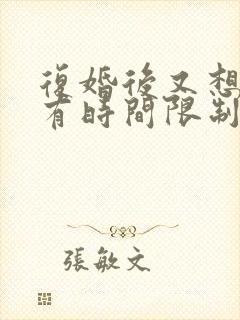 復婚後又想
有時間限制
張敏文